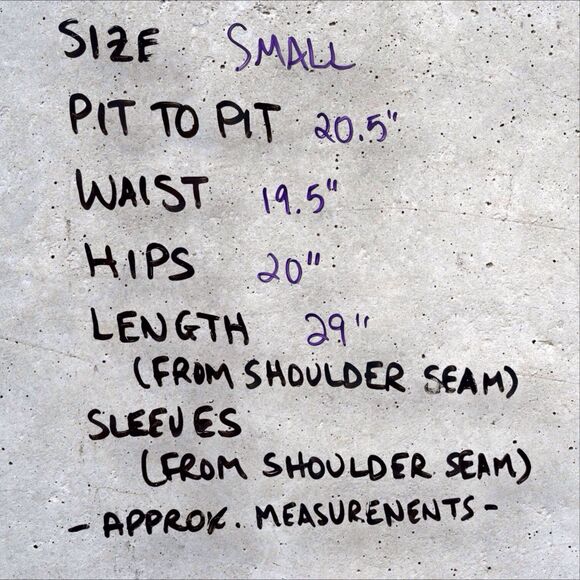 SIZE SMALL
PIT TO PIT 20.5"
WAIST 19.5"
HIPS 20"
LENGTH 29"
(FROM SHOULDER SEAM)
SLEEVES
(FROM SHOULDER SEAM)
- APPROX. MEASURENENTS -